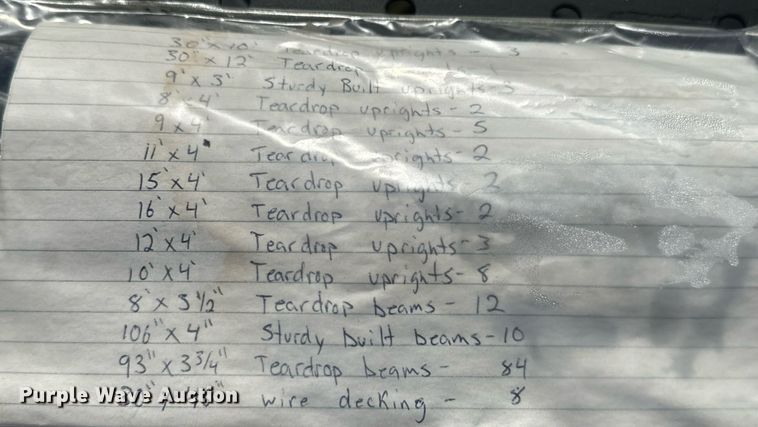 30" x 10' Teardrop uprights - 3
30" x 12' Teardrop
9' x 3' Sturdy Built uprights - 3
8' x 4' Teardrop uprights - 2
9 x 4' Teardrop uprights - 5
11' x 4' Teardrop uprights - 2
15' x 4' Teardrop uprights 2
16' x 4' Teardrop uprights - 2
12' x 4' Teardrop uprights - 3
10' x 4' Teardrop uprights - 8
8' x 3 1/2" Teardrop beams - 12
106" x 4" Sturdy built beams - 10
93" x 3 3/4" Teardrop beams - 84
wire decking - 8
Purple Wave Auction